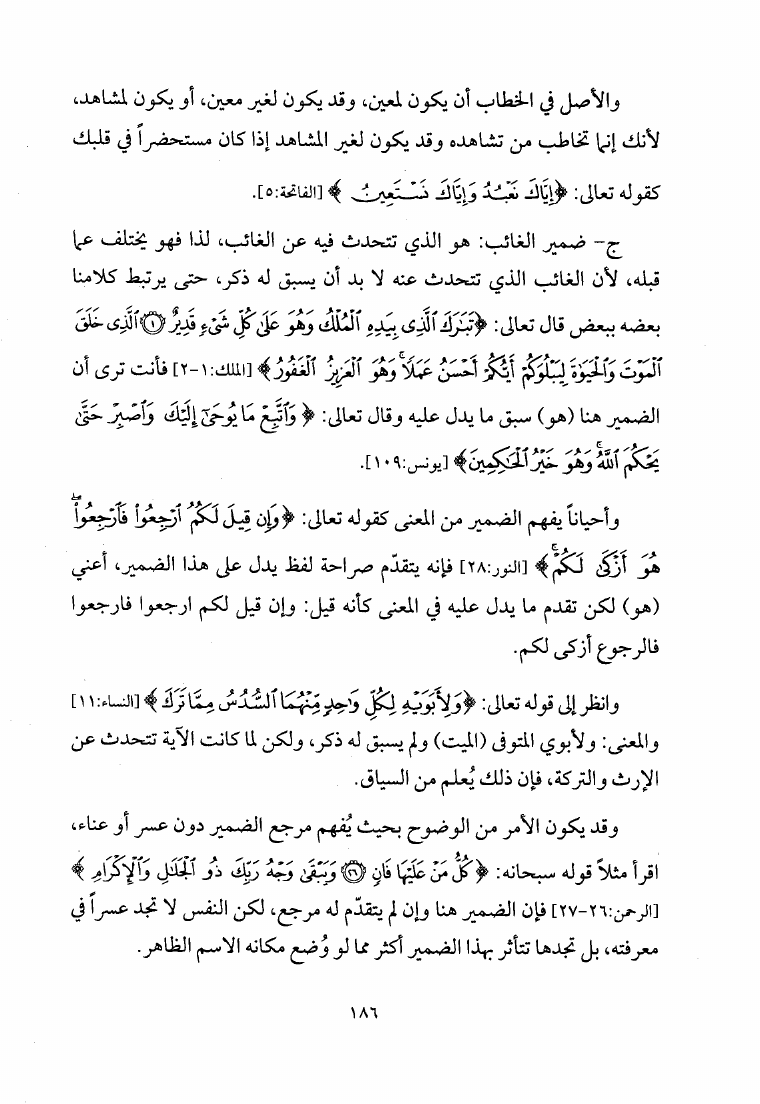 والأصل في الخطاب أن يكون لمعين، وقد يكون لغير معين، أو يكون لمشاهد،
لأنك إنما تخاطب من تشاهده وقد يكون لغير المشاهد إذا كان مستحضراً في قلبك
كقوله تعالى: ﴿إِيَّاكَ نَعْبُدُ وَإِيَّاكَ نَسْتَعِينُ ﴾ [الفاتحة:٥].
ج- ضمير الغائب: هو الذي تتحدث فيه عن الغائب، لذا فهو يختلف عما
قبله، لأن الغائب الذي تتحدث عنه لا بد أن يسبق له ذكر، حتى يرتبط كلامنا
بعضه ببعض قال تعالى: ﴿تَبَٰرَكَ ٱلَّذِى بِيَدِهِ ٱلْمُلْكُ وَهُوَ عَلَىٰ كُلِّ شَىْءٍ قَدِيرٌ ۝١ ٱلَّذِى خَلَقَ
ٱلْمَوْتَ وَٱلْحَيَوٰةَ لِيَبْلُوَكُمْ أَيُّكُمْ أَحْسَنُ عَمَلًا ۚ وَهُوَ ٱلْعَزِيزُ ٱلْغَفُورُ﴾ [الملك:١-٢] فأنت ترى أن
الضمير هنا (هو) سبق ما يدل عليه وقال تعالى: ﴿ وَٱتَّبِعْ مَا يُوحَىٰٓ إِلَيْكَ وَٱصْبِرْ حَتَّىٰ
يَحْكُمَ ٱللَّهُ ۚ وَهُوَ خَيْرُ ٱلْحَٰكِمِينَ﴾ [يونس:١٠٩].
وأحياناً يفهم الضمير من المعنى كقوله تعالى: ﴿وَإِن قِيلَ لَكُمُ ٱرْجِعُوا۟ فَٱرْجِعُوا۟ ۖ
هُوَ أَزْكَىٰ لَكُمْ ۚ﴾ [النور:٢٨] فإنه يتقدّم صراحة لفظ يدل على هذا الضمير، أعني
(هو) لكن تقدم ما يدل عليه في المعنى كأنه قيل: وإن قيل لكم ارجعوا فارجعوا
فالرجوع أزكى لكم.
وانظر إلى قوله تعالى: ﴿وَلِأَبَوَيْهِ لِكُلِّ وَٰحِدٍ مِّنْهُمَا ٱلسُّدُسُ مِمَّا تَرَكَ ﴾ [النساء:١١]
والمعنى: ولأبوي المتوفى (الميت) ولم يسبق له ذكر، ولكن لما كانت الآية تتحدث عن
الإرث والتركة، فإن ذلك يُعلم من السياق.
وقد يكون الأمر من الوضوح بحيث يُفهم مرجع الضمير دون عسر أو عناء،
اقرأ مثلاً قوله سبحانه: ﴿ كُلُّ مَنْ عَلَيْهَا فَانٍ ۝٢٦ وَيَبْقَىٰ وَجْهُ رَبِّكَ ذُو ٱلْجَلَٰلِ وَٱلْإِكْرَامِ ﴾
[الرحمن:٢٦-٢٧] فإن الضمير هنا وإن لم يتقدّم له مرجع، لكن النفس لا تجد عسراً في
معرفته، بل تجدها تتأثر بهذا الضمير أكثر مما لو وُضع مكانه الاسم الظاهر.
١٨٦